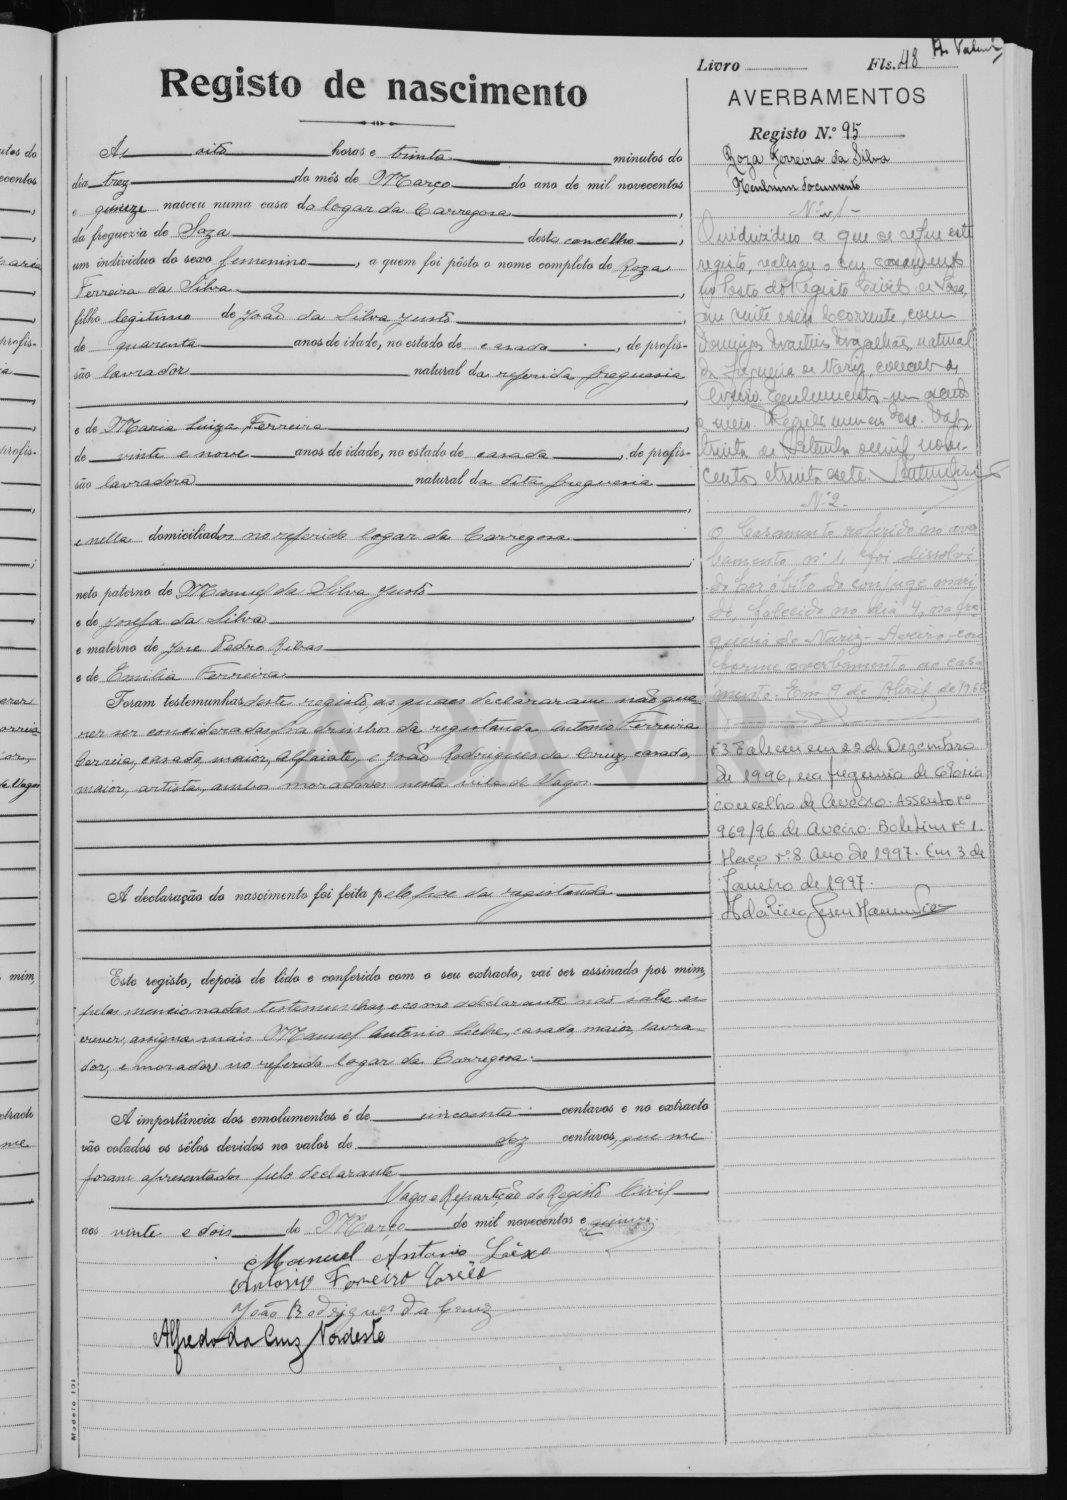 Registo de nascimento
Ás oito horas e trinta minutos do
dia trez do mês de Março do ano de mil novecentos
e quinze nasceu numa casa do logar da Carregosa,
da freguezia de Soza desto concelho,
um individuo do sexo femenino, a quem foi pôsto o nome completo de Roza
Ferreira da Silva,
filho legitimo de João da Silva Justo,
de quarenta anos de idade, no estado de casado, de profis-
são lavrador natural da referida freguesia
e de Maria Luiza Ferreira,
de vinte e nove anos de idade, no estado de casada, de profis-
são lavradora natural da dita freguesia
e nella domiciliados no referido logar da Carregosa
neto paterno de Manuel da Silva Justo
e de Josefa da Silva,
e materno de José Pedro Ribas
e de Emilia Ferreira.
Foram testemunhas deste registo, as quaes declararam não que-
rer ser consideradas padrinhos da registanda, Antonio Ferreira
Correia, casado, maior, alfaiate, e João Rodrigues da Cruz, casado,
maior, artista, ambos moradores nesta vila de Vagos.
A declaração do nascimento foi feita pelo pae da registanda
Este registo, depois de lido e conferido com o seu extracto, vai ser assinado por mim,
pelas mencionadas testemunhas, e como o declarante não sabe es-
crever, assigna mais Manuel Antonio, casado, maior, lavra-
dor, e morador no referido logar da Carregosa.
A importância dos emolumentos é de cincoenta centavos e no extracto
vão colados os sêlos devidos no valor de dez centavos, que me
foram apresentados pelo declarante
Vagos e Repartição do Registo Civil
aos vinte e dois de Março de mil novecentos e quinze.
Manuel Antonio
Antonio Ferreira Correia
João Rodrigues da Cruz
Alfredo da Cruz Nordeste
Modelo 101
Livro Fls. 48
AVERBAMENTOS
Registo N.º 95
Roza Ferreira da Silva
Nenhum documento
Nº 1
O individuo a que se refere este
registo, realisou o seu casamento
no Posto do Registo Civil de Soza,
em vinte e seis do corrente, com
Domingos Martins Magalhães, natural
da freguesia de Nariz, concelho de
Aveiro. Emolumentos
trinta de Setembro de mil nove-
centos e trinta e sete.
Nº 2.
O casamento referido no aver-
bamento nº 1, foi dissolvi-
do por óbito do conjuge mari-
do, falecido no dia 4, na fre-
guesia de Nariz - Aveiro, con-
forme averbamento ao casa-
mento. Em 9 de Abril de
nº 3. Faleceu em 22 de Dezembro
de 1996, na freguesia de Glória
concelho de Aveiro. Assento nº
969/96 de Aveiro. Boletim nº 1.
Março nº 8. Ano de 1997. Em 3 de
Janeiro de 1997.